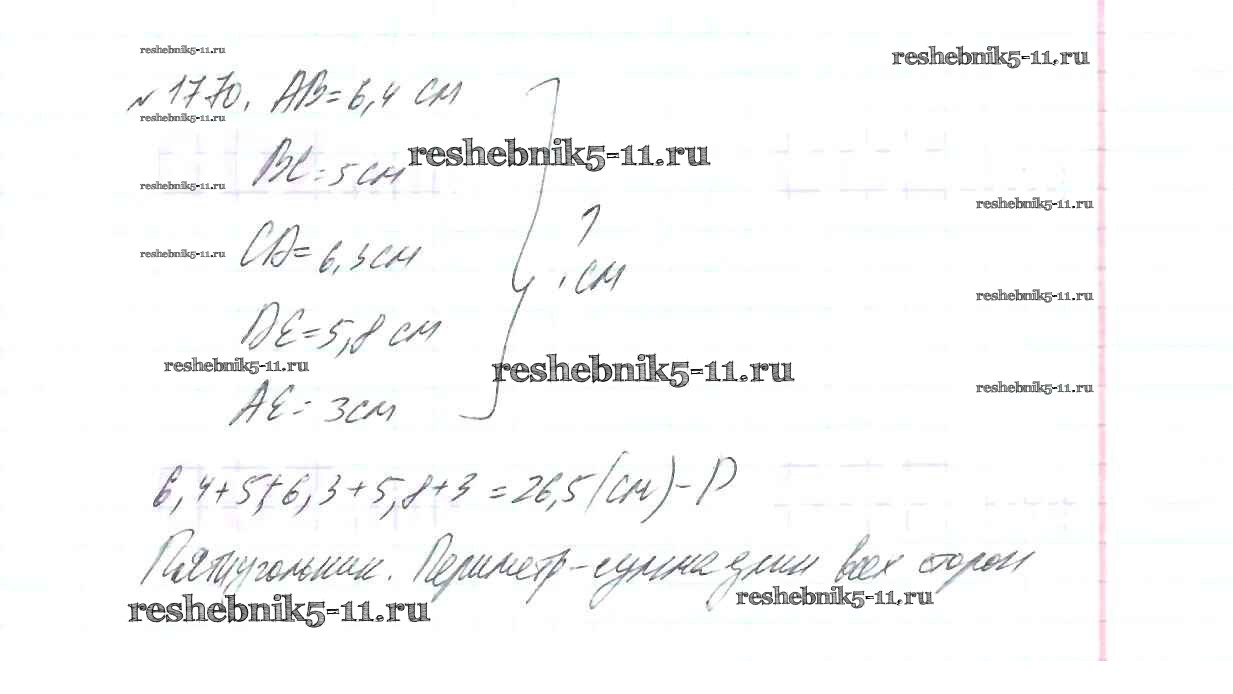 reshebnik5-11.ru
reshebnik5-11.ru
№ 1770. AB = 6,4 см
reshebnik5-11.ru
BC = 5 см
reshebnik5-11.ru
reshebnik5-11.ru
reshebnik5-11.ru
CD = 6,3 см
reshebnik5-11.ru
? см
reshebnik5-11.ru
DE = 5,8 см
reshebnik5-11.ru
reshebnik5-11.ru
reshebnik5-11.ru
AE = 3 см
6,4+5+6,3+5,8+3 = 26,5 (см) - P
Пятиугольник. Периметр - сумма длин всех сторон
reshebnik5-11.ru
reshebnik5-11.ru